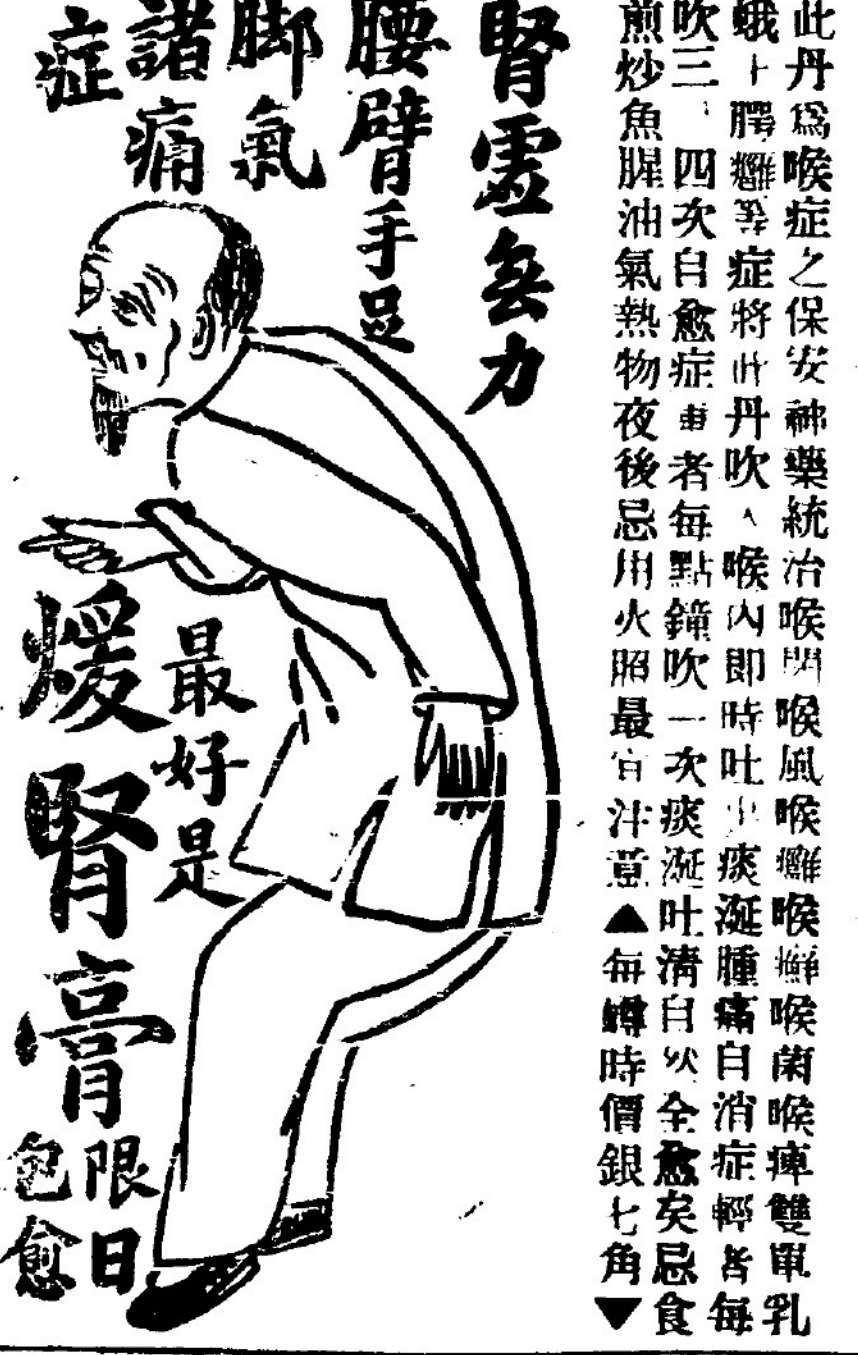 此丹爲喉症之保安神藥統治喉閉喉風喉癰喉癬喉菌喉痺雙單乳
蛾上腭癰等症將此丹吹入喉內即時吐出痰涎腫痛自消症輕者每
吹三、四次自愈症重者每點鐘吹一次痰涎吐清自然全愈矣忌食
煎炒魚腥油氣熱物夜後忌用火照最宜注意▲每罇時價銀七角▼
腎虛無力
腰臂手足
脚氣
諸痛
症
最好是
煖腎膏
限日
包愈